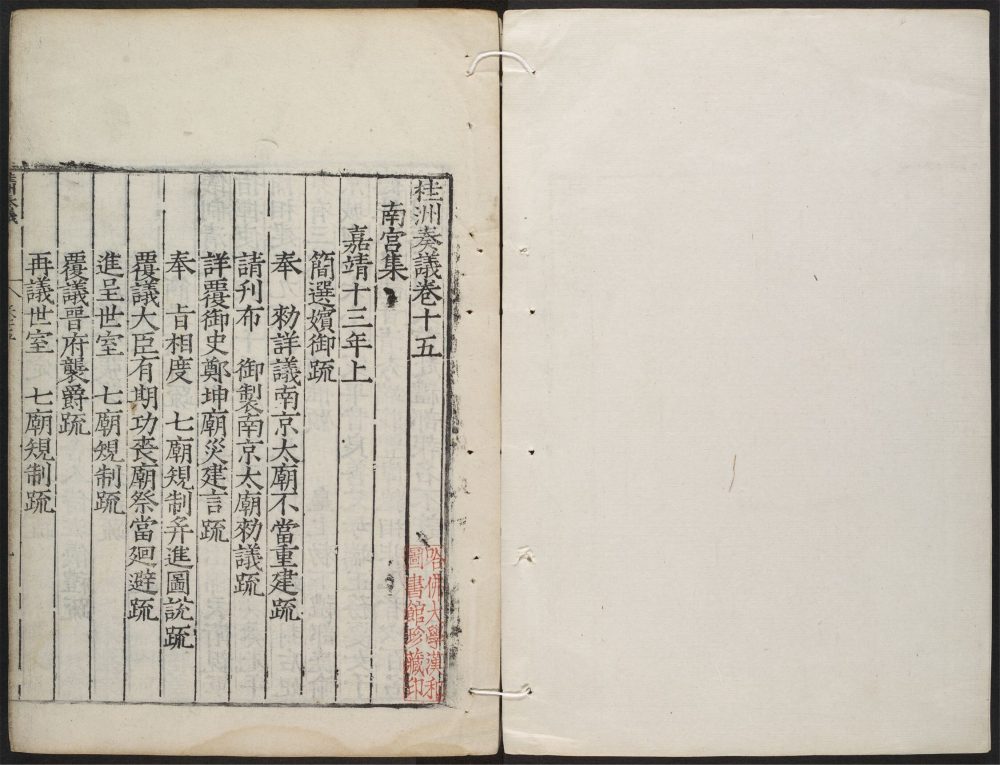 桂洲奏議卷十五
南宮集
嘉靖十三年上
簡選嬪御疏
奉　勑詳議南京太廟不當重建疏
請刊布　御製南京太廟勑議疏
詳覆御史鄭坤廟災建言疏
奉　旨相度　七廟規制弁進圖說疏
覆議大臣有期功喪廟祭當廻避疏
進呈世室　七廟規制疏
覆議晉府襲爵疏
再議世室　七廟規制疏
哈佛大學漢和
圖書館珍藏印